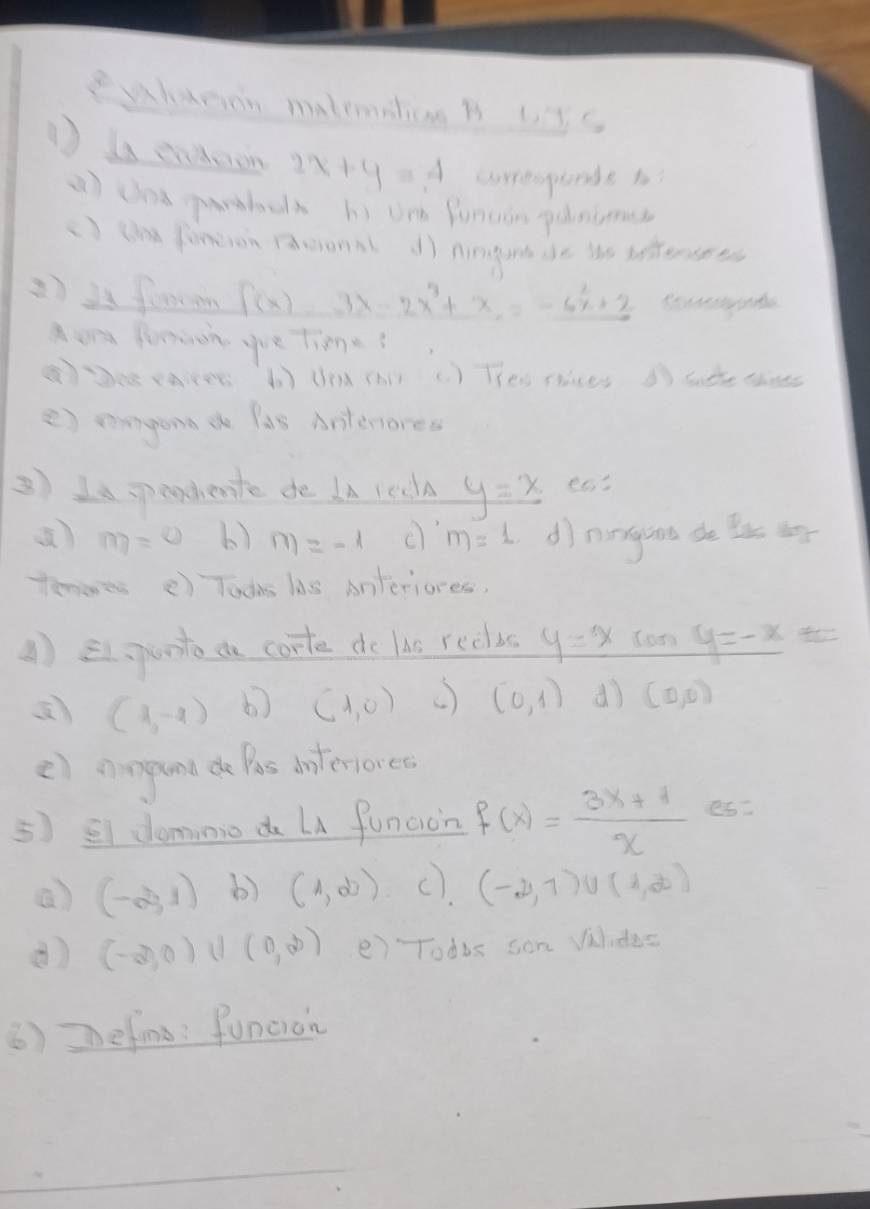 Evaluación matemáticas B UTS
1) La ecuación 2x + y = 4 corresponde a:
a) Una parabola b) Una función polinomica
c) Una función racional d) ninguna de las anteriores
2) La función f(x) 3x - 2x + x = - 6x + 2 corresponde
a una función que tiene:
a) Dos raices b) Una raiz c) Tres raices d) raices
e) ninguna de las anteriores
3) La pendiente de la recta y = x es:
a) m = 0 b) m = -1 c) m = 1. d) ninguna de las an-
teriores e) Todas las anteriores.
4) El punto de corte de las rectas y = x con y = -x
a) (1,-1) b) (1,0) c) (0,1) d) (0,0)
e) ninguna de las anteriores
5) El dominio de La función f(x) = \frac{3x + 1}{x} es:
a) (-∞,1) b) (1,∞) c). (-∞,1)∪(1,∞)
d) (-∞,0) ∪ (0,∞) e) Todas son validas
6) Defina: función